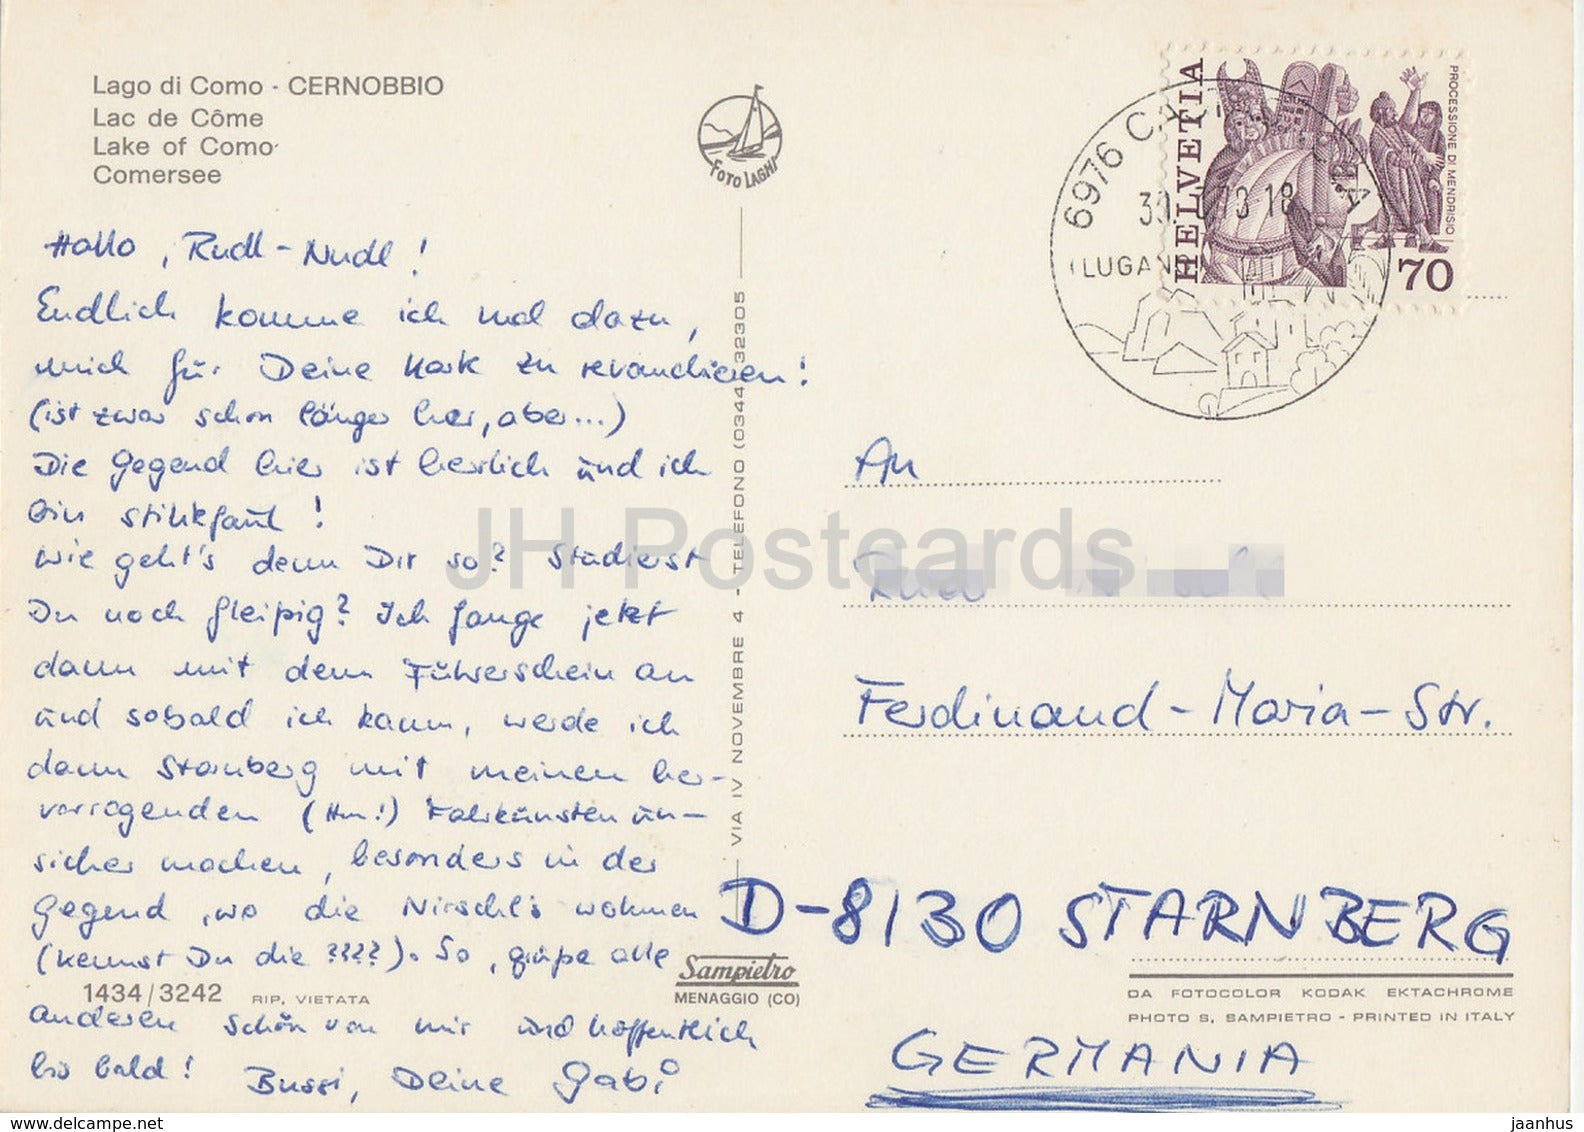 Lago di Como - CERNOBBIO
Lac de Côme
Lake of Como
Comersee
FOTO LAGHI
Hallo, Rudl-Nudl!
Endlich komme ich mal dazu,
mich für Deine Kark zu revanchieren!
(ist zwar schon länger her, aber...)
Die Gegend hier ist herrlich und ich
bin stinkfaul!
Wie geht's denn Dir so? Studierst
Du noch fleißig? Ich fange jetzt
dann mit dem Führerschein an
und sobald ich kann, werde ich
dann Starnberg mit meinen her-
vorragenden (Hm!) Fahrkünsten un-
sicher machen, besonders in der
Gegend, wo die Nirschl's wohnen
(kennst Du die ????). So, grüße alle
anderen schön von mir und hoffentlich
bis bald! Bussi, Deine Gabi
1434/3242 RIP. VIETATA
VIA IV NOVEMBRE 4 - TELEFONO (0344) 32305
Sampietro
MENAGGIO (CO)
HELVETIA
PROCESSIONE DI MENDRISIO
70
6976
18
An
Ferdinand-Maria-Str.
D-8130 STARNBERG
GERMANIA
DA FOTOCOLOR KODAK EKTACHROME
PHOTO S. SAMPIETRO - PRINTED IN ITALY
JH Postcards
www.delcampe.net
jaanhus